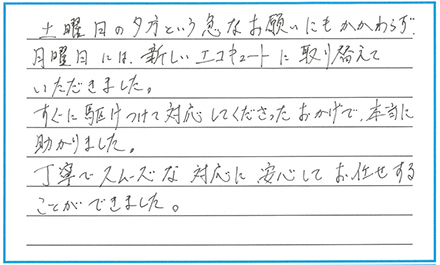 土曜日の夕方という急なお願いにもかかわらず
月曜日には、新しいエコキュートに取り替えて
いただきました。
すぐに駆けつけて対応してくださったおかげで、本当に
助かりました。
丁寧でスムーズな対応に安心してお任せする
ことができました。